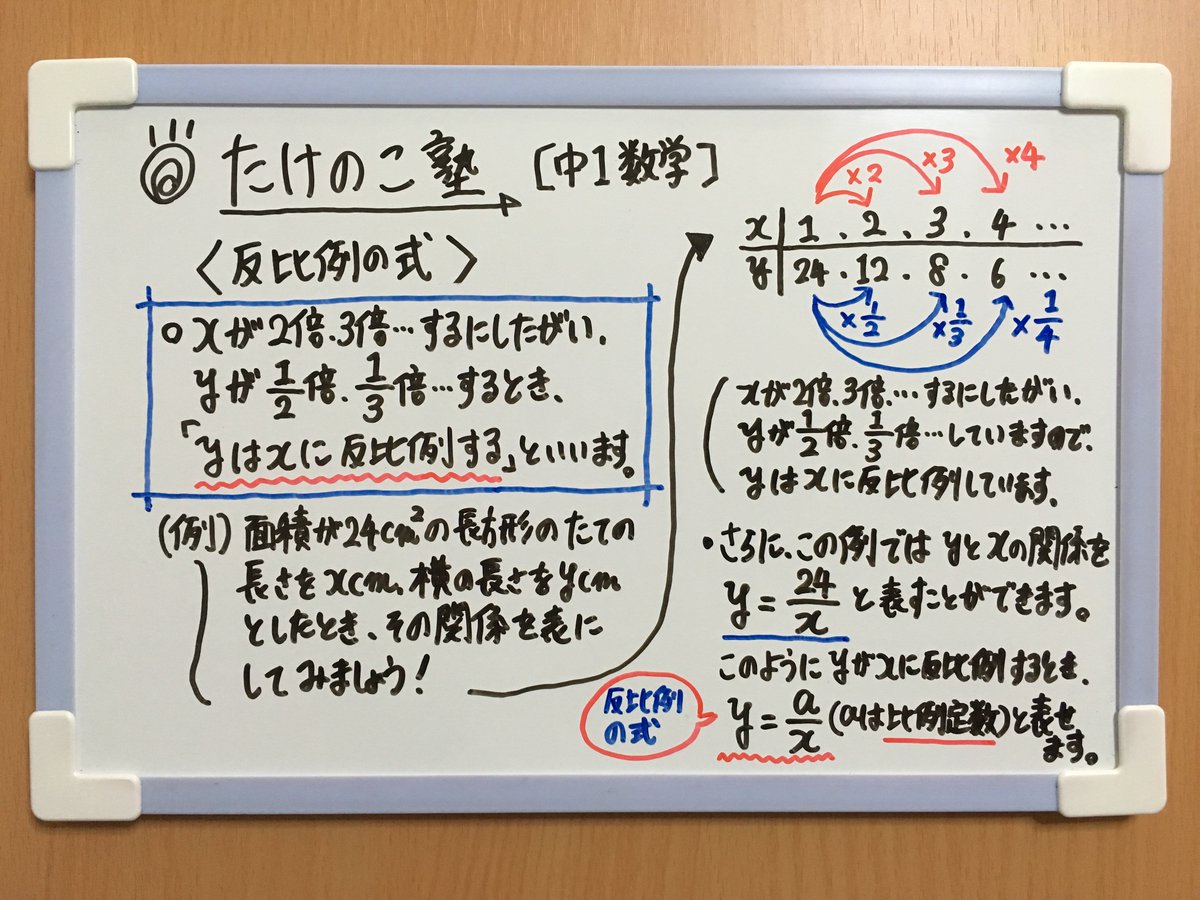 たけのこ塾 [中1数学]
〈反比例の式〉
○ xが2倍、3倍…するにしたがい、
yが1/2倍、1/3倍…するとき、
「yはxに反比例する」といいます。
(例) 面積が24cm²の長方形のたての
長さをxcm、横の長さをycm
としたとき、その関係を表に
してみましょう!
×2 ×3 ×4
x 1 . 2 . 3 . 4 …
y 24 . 12 . 8 . 6 …
×1/2 ×1/3 ×1/4
xが2倍、3倍、…するにしたがい、
yが1/2倍、1/3倍…していますので、
yはxに反比例しています。
・さらに、この例ではyとxの関係を
y=24/x と表すことができます。
このようにyがxに反比例するとき、
反比例
の式
y=a/x (aは比例定数)と表せ
ます。